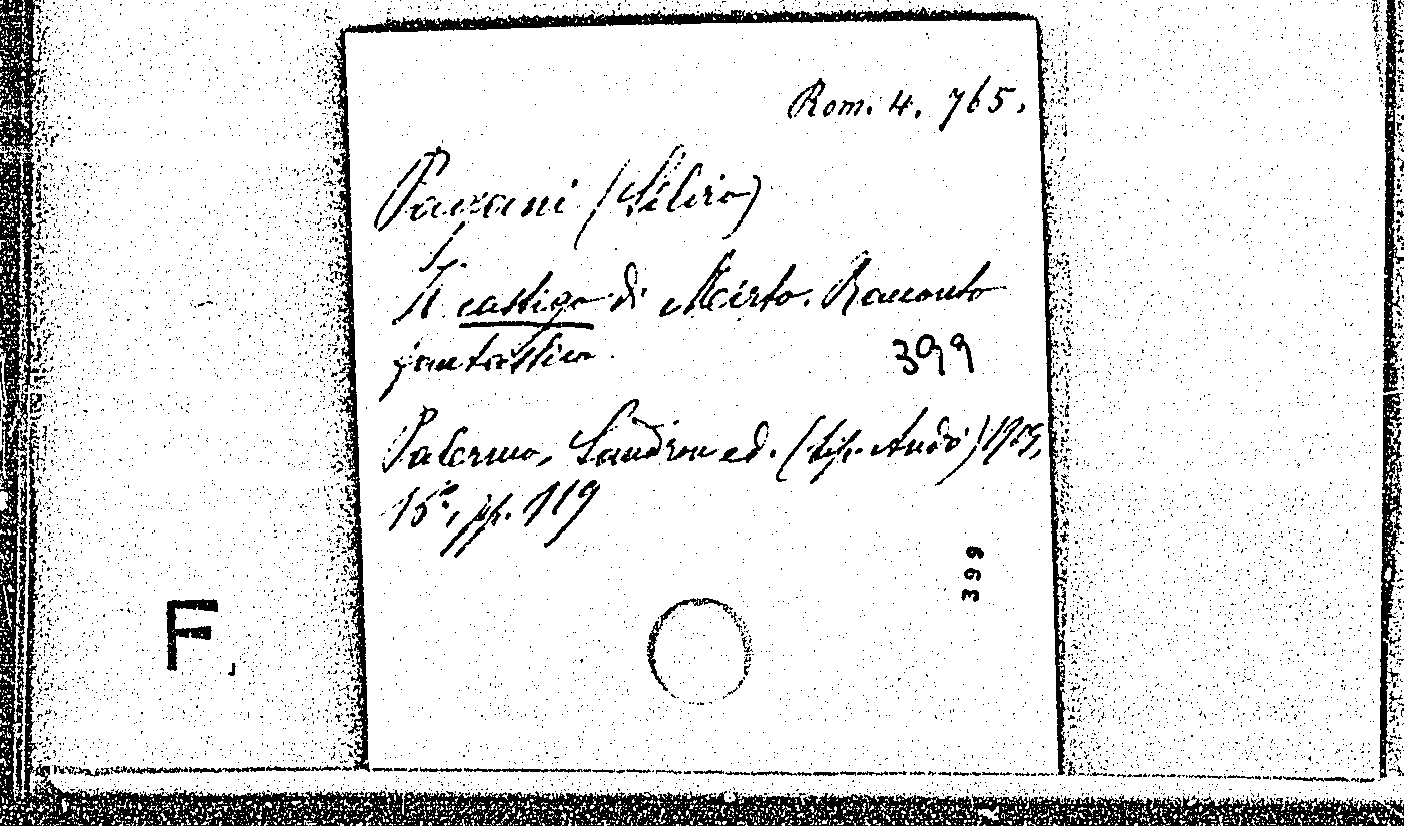 Rom. 4. 765.
Pavani (Silvio)
Il castigo di Mirto. Racconto
fantastico.
399
Palermo, Sandron ed. (tip. Andò)
16°, pp. 119
399
F